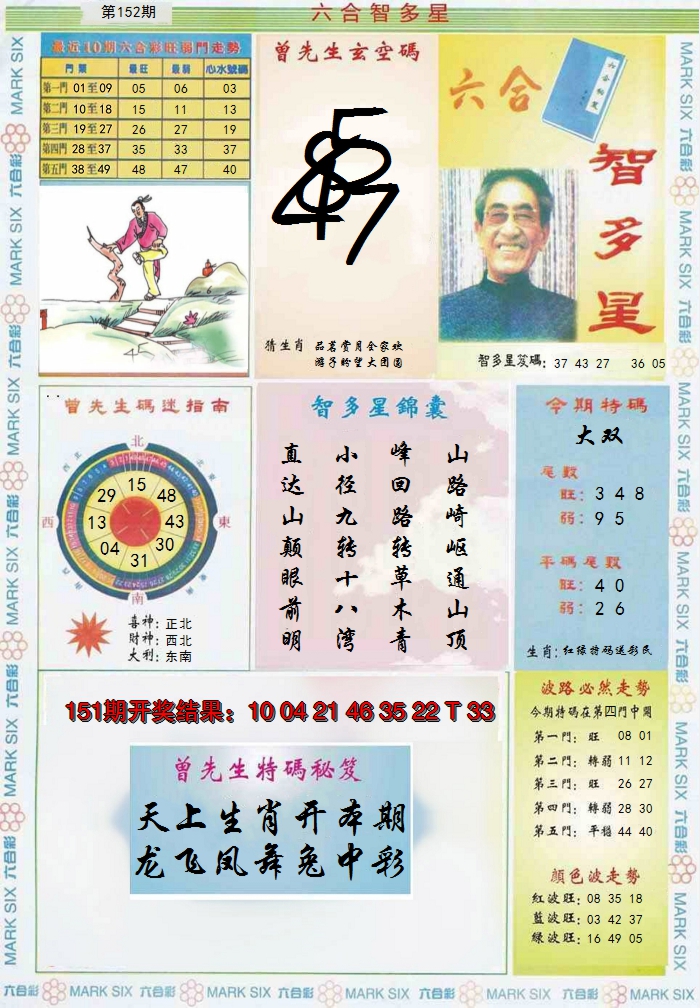 第152期
六合智多星
最近10期六合彩旺弱門走勢
門類 最旺 最弱 心水號碼
第一門 01至09 05 06 03
第二門 10至18 15 11 13
第三門 19至27 26 27 19
第四門 28至37 35 33 37
第五門 38至49 48 47 40
曾先生玄空碼
猜生肖 品茗赏月全家欢
游子盼望大团圆
六合
智多星
智多星笈碼: 37 43 27 36 05
曾先生碼迷指南
北
西
東
南
15
48
43
30
31
04
13
29
喜神: 正北
財神: 西北
大利: 东南
智多星錦囊
山路崎岖通山顶
峰回路转草木青
小径九转十八湾
直达山巅眼前明
今期特碼
大双
尾數
旺: 3 4 8
弱: 9 5
平碼尾數
旺: 4 0
弱: 2 6
生肖: 红绿特码送彩民
151期开奖结果: 10 04 21 46 35 22 T 33
曾先生特碼秘笈
天上生肖开本期
龙飞凤舞兔中彩
波路必然走勢
今期特碼在第四門中開
第一門: 旺 08 01
第二門: 轉弱 11 12
第三門: 旺 26 27
第四門: 轉弱 28 30
第五門: 平穩 44 40
顏色波走勢
紅波旺: 08 35 18
藍波旺: 03 42 37
綠波旺: 16 49 05
六合彩 MARK SIX 六合彩 MARK SIX 六合彩 MARK SIX 六合彩 MARK SIX 六合彩 MARK SIX